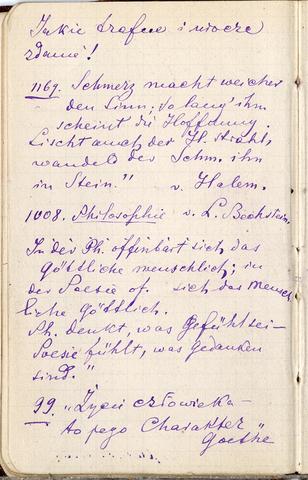 Jakie trafne i urocze
zdanie!
1169. Schmerz macht weicher
den Sinn; so lang' ihm
scheint die Hoffnung
Lischt auch der H. Strahl,
wandelt der Schm. ihn
in Stein." v. Halem.
1008. Philosophie v. L. Bechstein.
In der Ph. offenbart sich das
göttliche menschlich; in
der Poesie of. sich das mensch
liche göttlich.
Ph. denkt, was Gefühl sei -
Poesie fühlt, was Gedanken
sind."
99. „Życie człowieka -
to jego Charakter"
Goethe